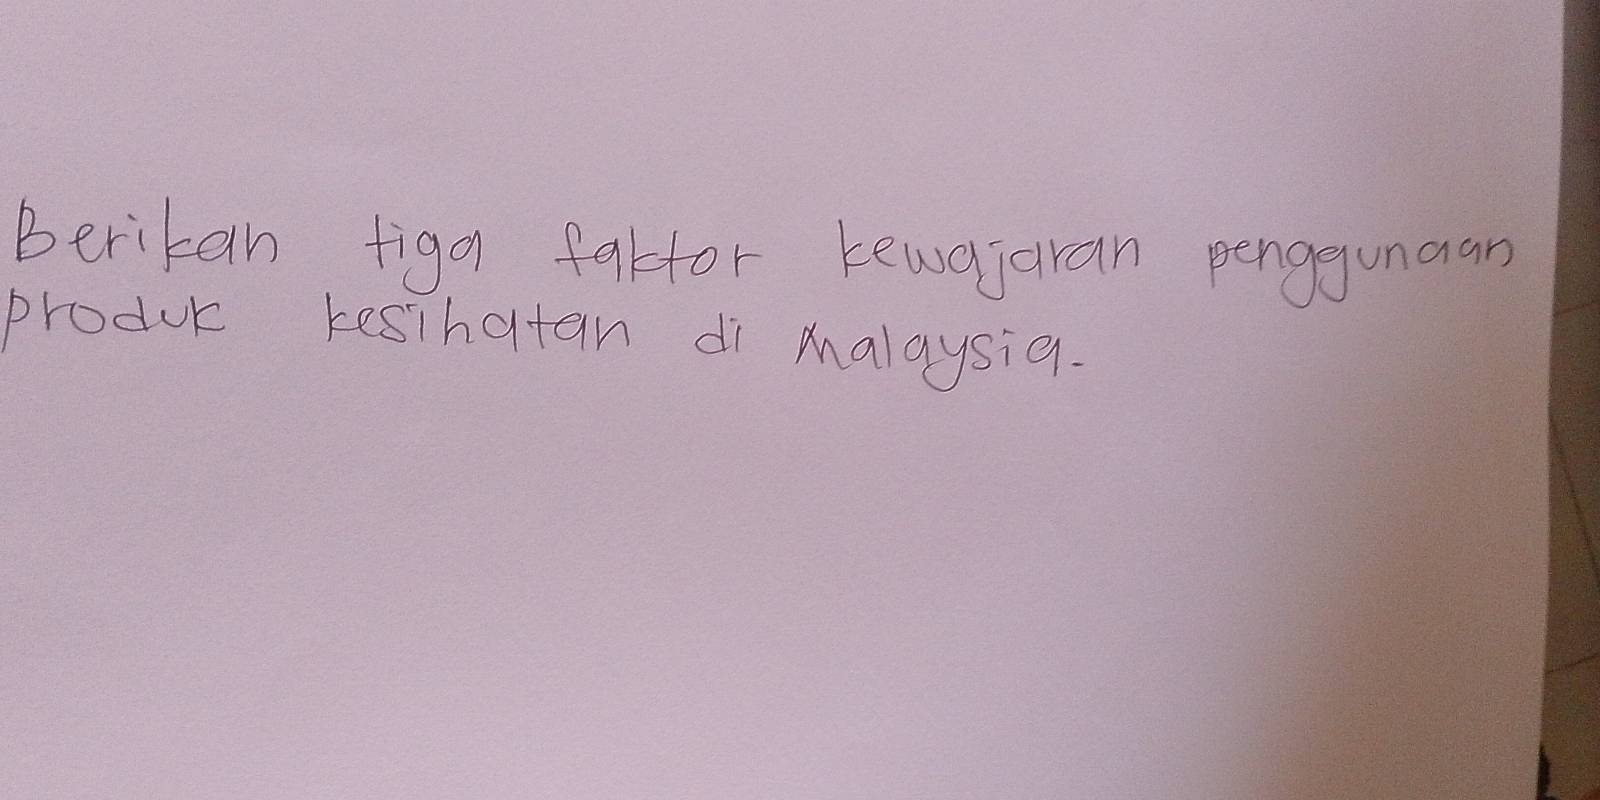 Berikan tiga faktor kewajaran penggunaan
produk kesihatan di Malaysia.